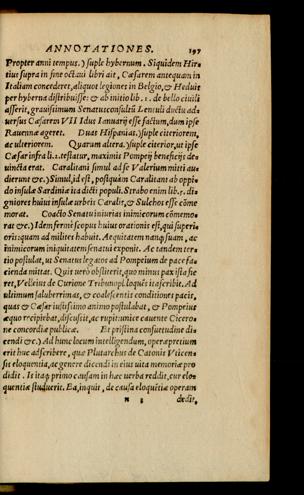 ANNOTATIONES. 197
Propter anni tempus.) suple hybernum. Siquidem Hir-
tius supra in fine octaui libri ait, Cæsarem antequam in
Italiam concederet, aliquot legiones in Belgio, & Heduis
per hyberna distribuisse: & ab initio lib. 1. de bello ciuili
asserit, grauissimum Senatusconsultũ Lentuli ductu ad-
uersus Cæsarem VII Idus Ianuarij esse factum, dum ipse
Rauennæ ageret. Duas Hispanias.) suple citeriorem,
ac vlteriorem. Quarum altera.) suple citerior, ut ipse
Cæsar infra li.2. testatur, maximis Pompeij beneficijs de-
uincta erat. Caralitani simul ad se Valerium mitti au-
dierunt &c.) Simul, id est, postquàm Caralitani ab oppi-
do insulæ Sardiniæ ita dicti populi. Strabo enim lib. 5. di-
gniores huius insulæ urbeis Caralit, & Sulchos esse cõme
morat. Coacto Senatu iniurias inimicorum cõmemo-
rat &c.) Idem fermè scopus huius orationis est, qui superi-
oris: quam ad milites habuit. Aequitatem nanq; suam, ac
inimicorum iniquitatem senatui exponit. Ac tandem ter-
tio postulat, ut Senatus legatos ad Pompeium de pace fa-
cienda mittat. Quis uerò obstiterit, quo minus pax ista fie
ret, Velleius de Curione Tribuno pl. loquẽs ita scribit. Ad
ultimum saluberrimas, & coalescentis conditiones pacis,
quas & Cæsar iustissimo animo postulabat, & Pompeius
æquo recipiebat, discussit, ac rupit: unicè cauente Cicero-
ne concordiæ publicæ. Et pristina consuetudine di-
cendi &c.) Ad hunc locum intelligendum, operæ pretium
erit huc adscribere, quæ Plutarchus de Catonis Vticen-
sis eloquentia, ac genere dicendi in eius uita memoriæ pro
didit. Is itaq; primo causam in hæc uerba reddit, cur elo-
quentiæ studuerit. Ea, inquit, de causa eloquẽtiæ operam
n 3 dedit,